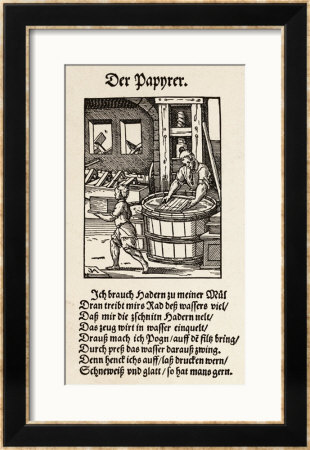 Der Papyrer.
Ich brauch Hadern zu meiner Mül
Dran treibt mirs Rad deß wassers viel/
Daß mir die zschnitn Hadern nelt/
Das zeug wirt in wasser einquelt/
Drauß mach ich Pogn/auff dē filtz bring/
Durch preß das wasser darauß zwing.
Denn henck ichs auff/laß drucken wern/
Schneweiß vnd glatt/so hat mans gern.